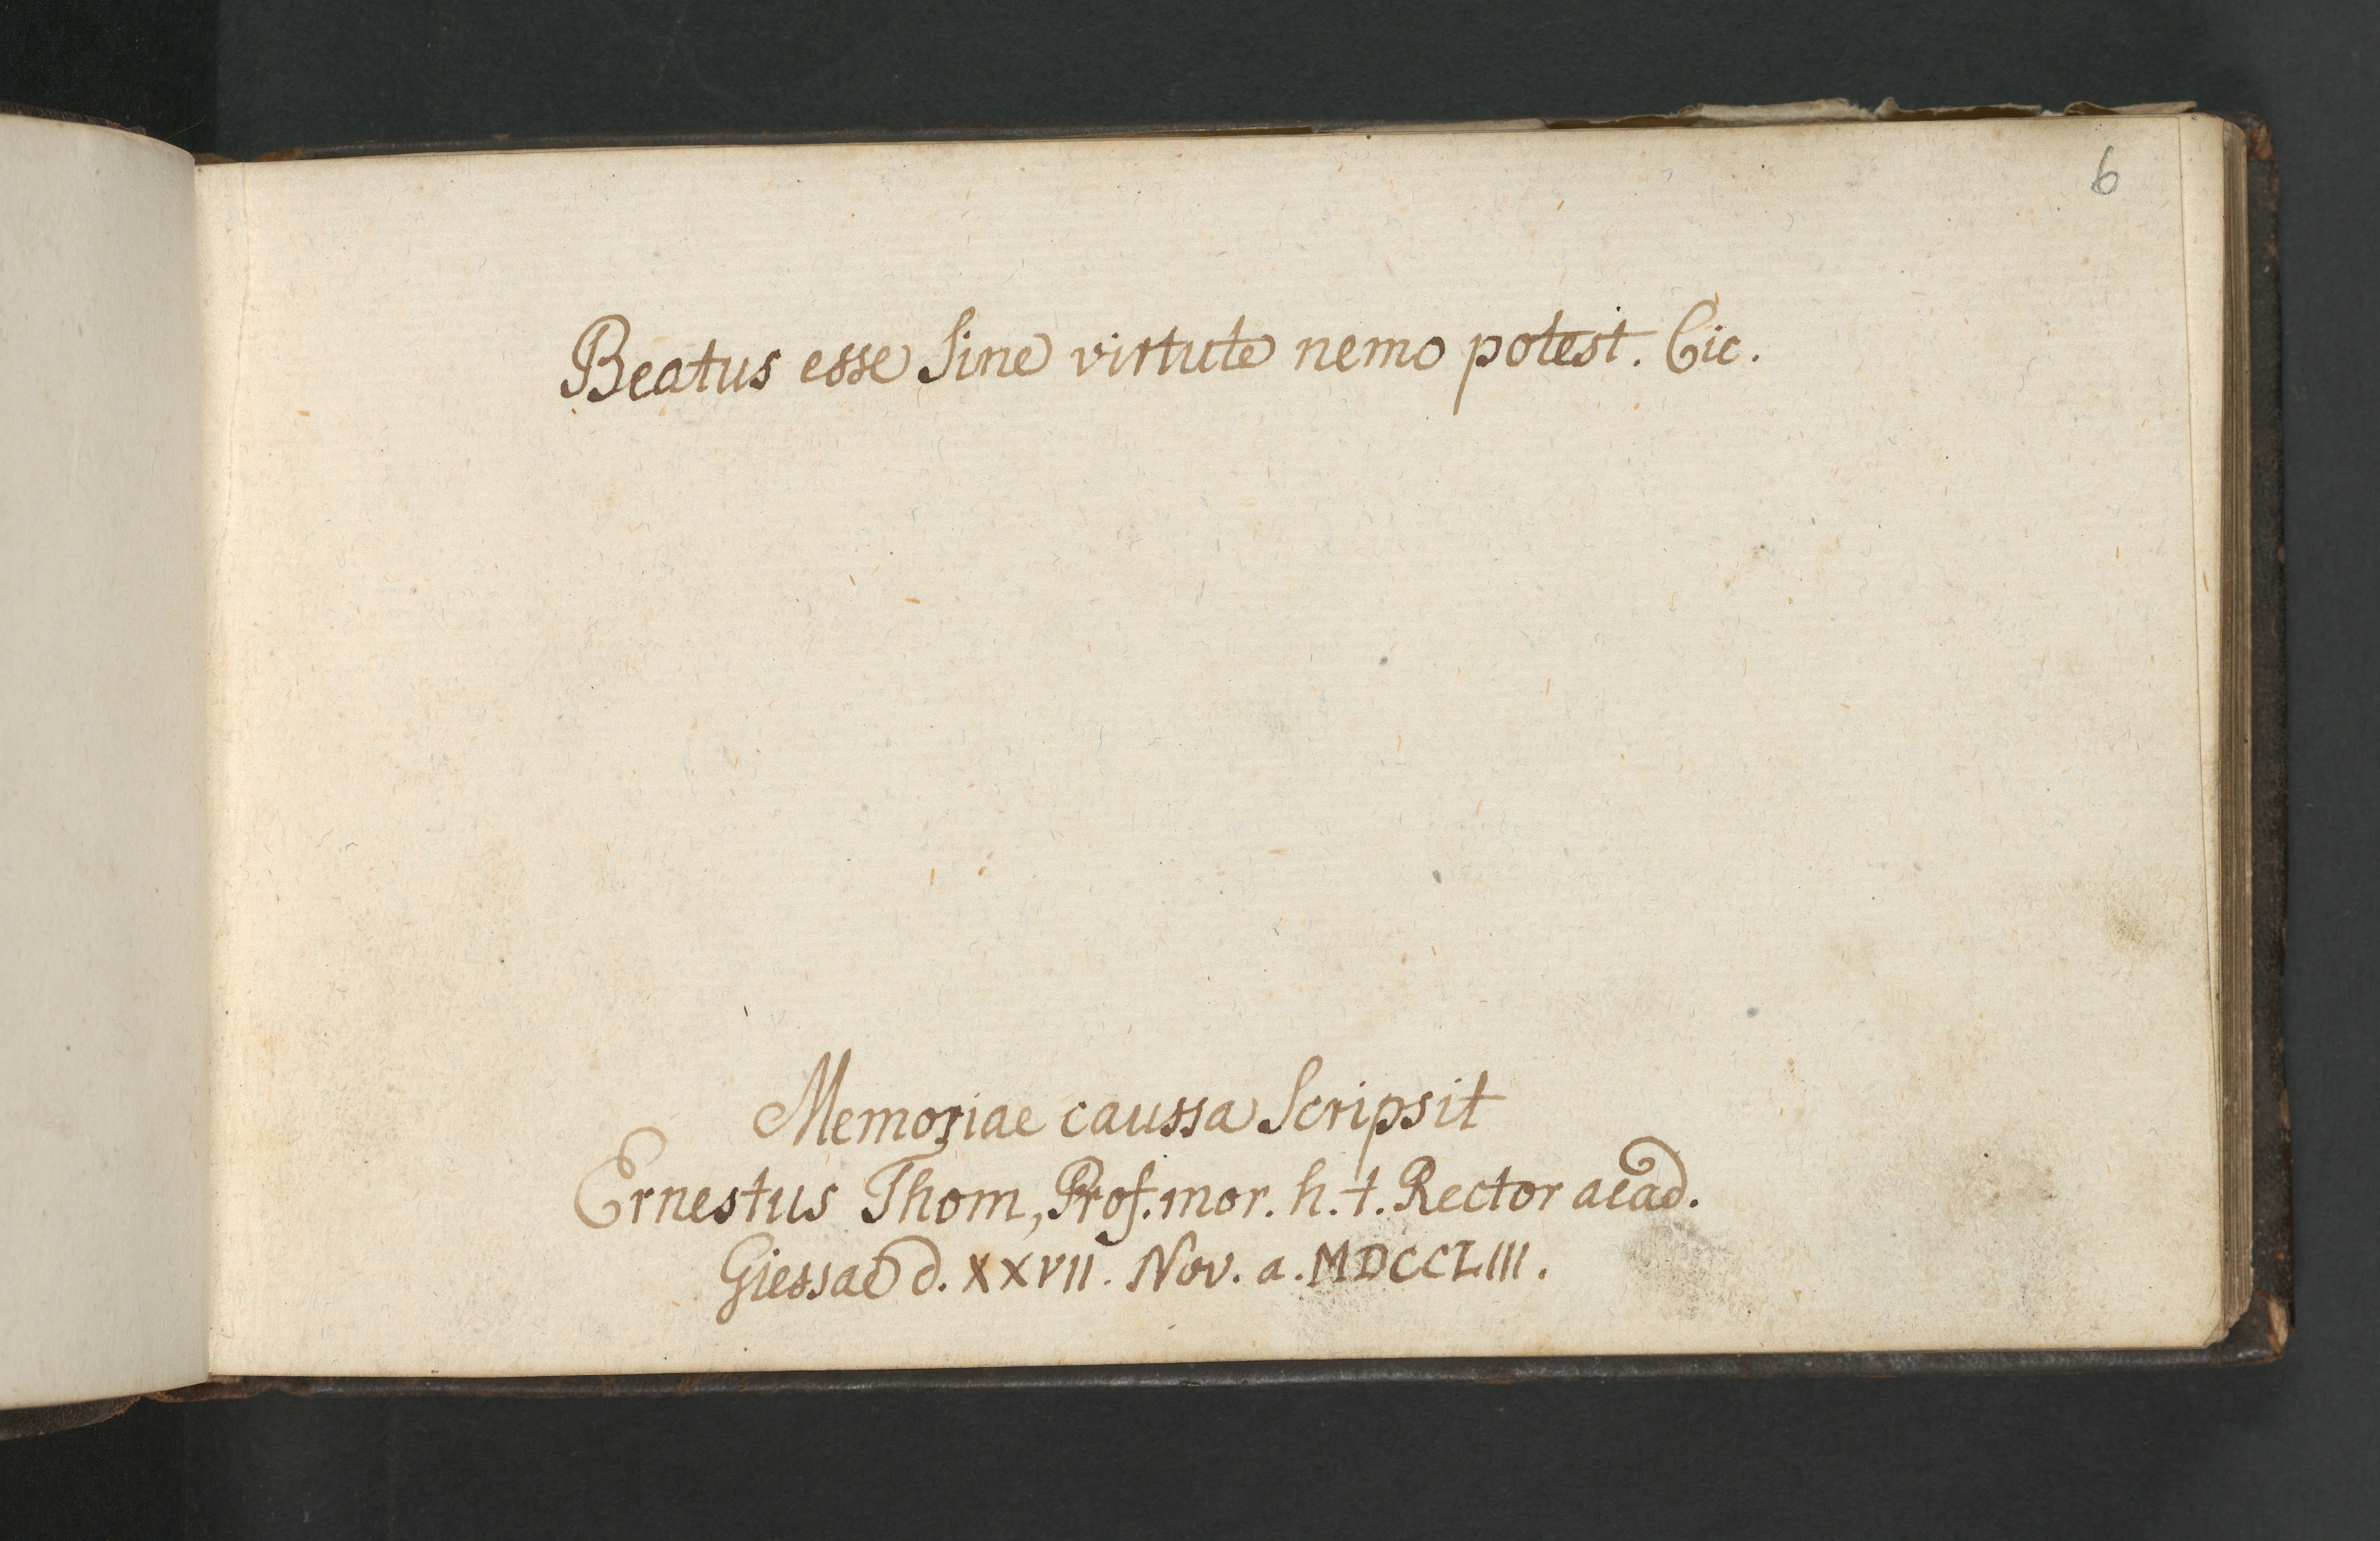 6
Beatus esse sine virtute nemo potest. Cic.
Memoriae caussa scripsit
Ernestus Thom, Prof. mor. h. t. Rector acad.
Giessae d. XXVII. Nov. a. MDCCLIII.